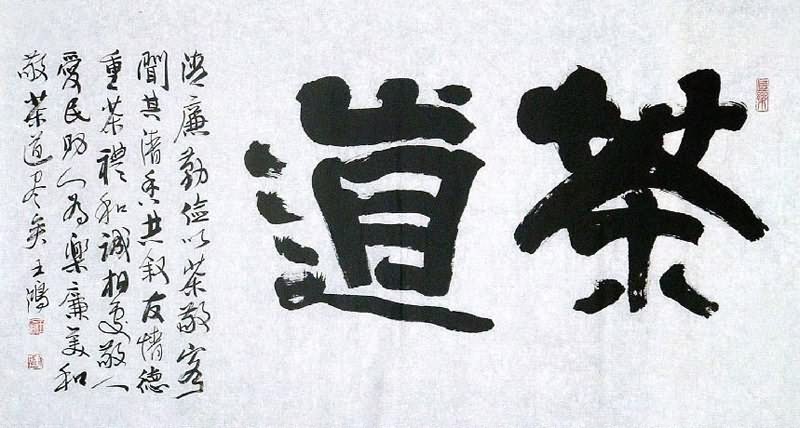 茶道
清廉勤俭以茶敬客
聞其清香共叙友情德
重茶禮和誠相處敬人
愛民助人為樂廉美和
敬茶道尽矣 王鴻